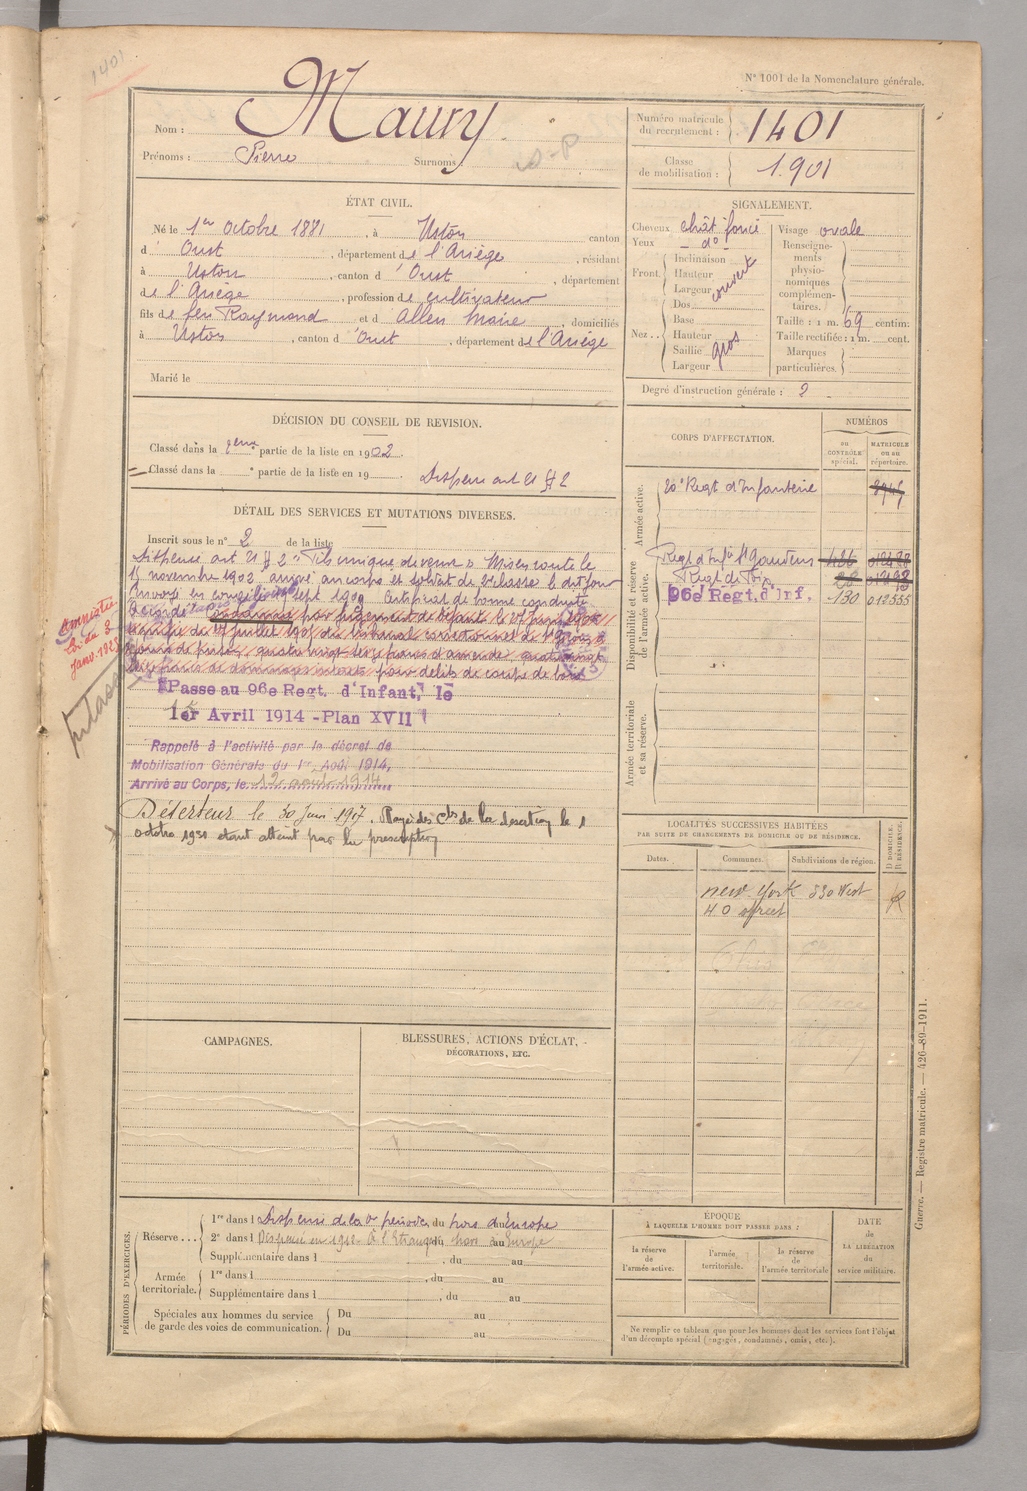 1401
N° 1001 de la Nomenclature générale.
Nom : Maury
Prénoms : Pierre Surnoms
Numéro matricule du recrutement : 1401
Classe de mobilisation : 1901
ÉTAT CIVIL.
Né le 1er Octobre 1881, à Ustou canton
d' Oust, département de l'Ariège, résidant
à Ustou, canton d'Oust, département
de l'Ariège, profession de cultivateur
fils de feu Raymond et d' Allen Marie, domiciliés
à Ustou, canton d'Oust, département de l'Ariège
Marié le
SIGNALEMENT.
Cheveux chât foncé
Yeux - d° -
Front Inclinaison
Hauteur
Largeur
couvert
Nez Dos
Base
Hauteur
Saillie
Largeur
gros
Visage ovale
Renseignements physionomiques complémentaires.
Taille : 1 m. 69 centim.
Taille rectifiée : 1 m. cent.
Marques particulières.
Degré d'instruction générale : 2
DÉCISION DU CONSEIL DE REVISION.
Classé dans la 2ème partie de la liste en 1902.
Classé dans la partie de la liste en 19
Dispensé art 21 § 2
CORPS D'AFFECTATION.
NUMÉROS
au CONTRÔLE spécial.
MATRICULE ou au répertoire.
Armée active.
20e Regt d'Infanterie
Disponibilité et réserve de l'armée active.
Regt d'Infie St Gaudens 436
Regt de Foix
96e Régt. d'Inf. 130 012555
Armée territoriale et sa réserve.
DÉTAIL DES SERVICES ET MUTATIONS DIVERSES.
Inscrit sous le n° 2 de la liste
Dispensé art 21 § 2 "Fils unique de veuve". Mis en route le
15 novembre 1902, arrivé au corps et soldat de 2e classe le dit jour
Envoyé en congé le sept. 1903 Certificat de bonne conduite
Accordé
condamné par jugement de défaut le 27 juin
signifié du juillet 190 du tribunal correctionnel de St Girons à
jours de prison, quatre vingt seize francs d'amende
francs de dommages intérêts pour délits de coupe de bois
Amnistié
loi du 3
janv. 1925
Passe au 96e Regt. d'Infant. le
1er Avril 1914 - Plan XVII
Rappelé à l'activité par le décret de
Mobilisation Générale du 1er Août 1914,
Arrivé au Corps, le 12 août 1914
Déserteur le 30 Juin 1917. Rayé des cles de la désertion le 1
octobre 1931 étant atteint par la prescription
LOCALITÉS SUCCESSIVES HABITÉES
PAR SUITE DE CHANGEMENTS DE DOMICILE OU DE RÉSIDENCE.
Dates. Communes. Subdivisions de région. D. DOMICILE. R. RÉSIDENCE.
New York 530 West R
40 street
CAMPAGNES.
BLESSURES, ACTIONS D'ÉCLAT,
DÉCORATIONS, ETC.
PÉRIODES D'EXERCICES.
Réserve 1re dans l Dispensé de la 1re période du hors du Europe
2e dans l Dispensé en 1912 à l'Etranger, hors au Europe
Supplémentaire dans l , du au
Armée territoriale. 1re dans l , du au
Supplémentaire dans l , du au
Spéciales aux hommes du service de garde des voies de communication. Du au
Du au
ÉPOQUE
À LAQUELLE L'HOMME DOIT PASSER DANS :
la réserve de l'armée active.
l'armée territoriale.
la réserve de l'armée territoriale
DATE de LA LIBÉRATION du service militaire.
Ne remplir ce tableau que pour les hommes dont les services font l'objet
d'un décompte spécial (engagés, condamnés, omis, etc.).
Guerre. — Registre matricule. — 426-89-1911.